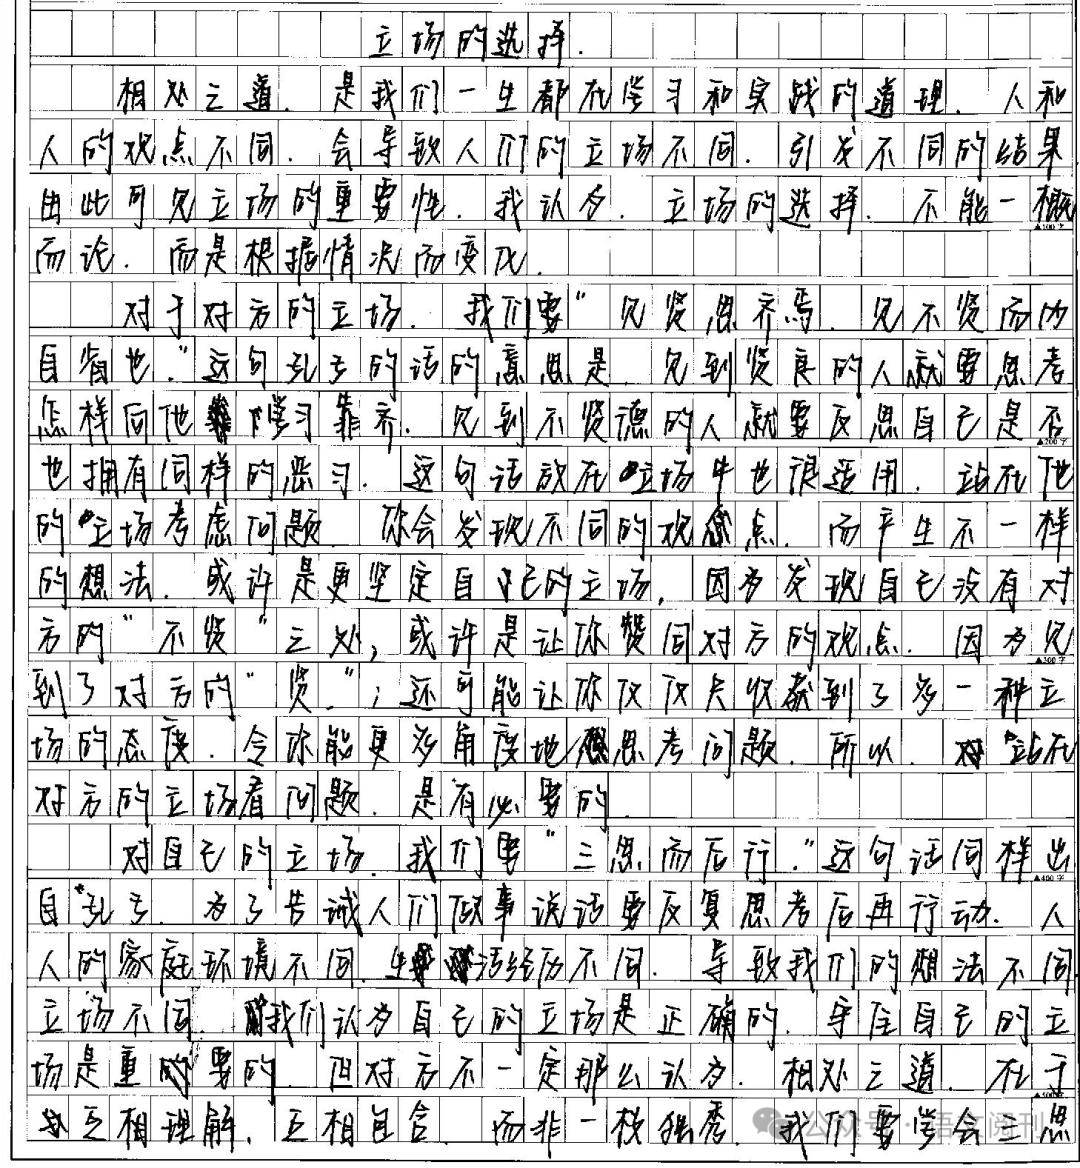 立场的选择.
相处之道.是我们一生都在学习和实践的道理.人和
人的观点不同.会导致人们的立场不同.引发不同的结果
由此可见立场的重要性.我认为.立场的选择.不能一概
▲100字
而论.而是根据情况而变化.
对于对方的立场.我们要"见贤思齐焉.见不贤而内
自省也."这句孔子的话的意思是.见到贤良的人就要思考
怎样向他学习靠齐.见到不贤德的人就要反思自己是否
▲200字
也拥有同样的恶习.这句话放在立场中也很适用.站在他
的立场考虑问题.你会发现不同的观点.而产生不一样
的想法.或许是更坚定自己的立场,因为发现自己没有对
方的"不贤"之处;或许是让你赞同对方的观点.因为见
▲300字
到了对方的"贤.";还可能让你仅仅只收获到了多一种立
场的态度.令你能更多角度地思考问题.所以.站在
对方的立场看问题.是有必要的.
对自己的立场.我们要"三思而后行."这句话同样出
▲400字
自孔子.为了告诫人们做事说话要反复思考后再行动.人
人的家庭环境不同.生活经历不同.导致我们的想法不同
立场不同.我们认为自己的立场是正确的.守住自己的立
场是重要的.但对方不一定那么认为.相处之道.在于
▲500字
互相理解.互相包含.而非一枝独秀.我们要学会三思
公众号·语文阅刊